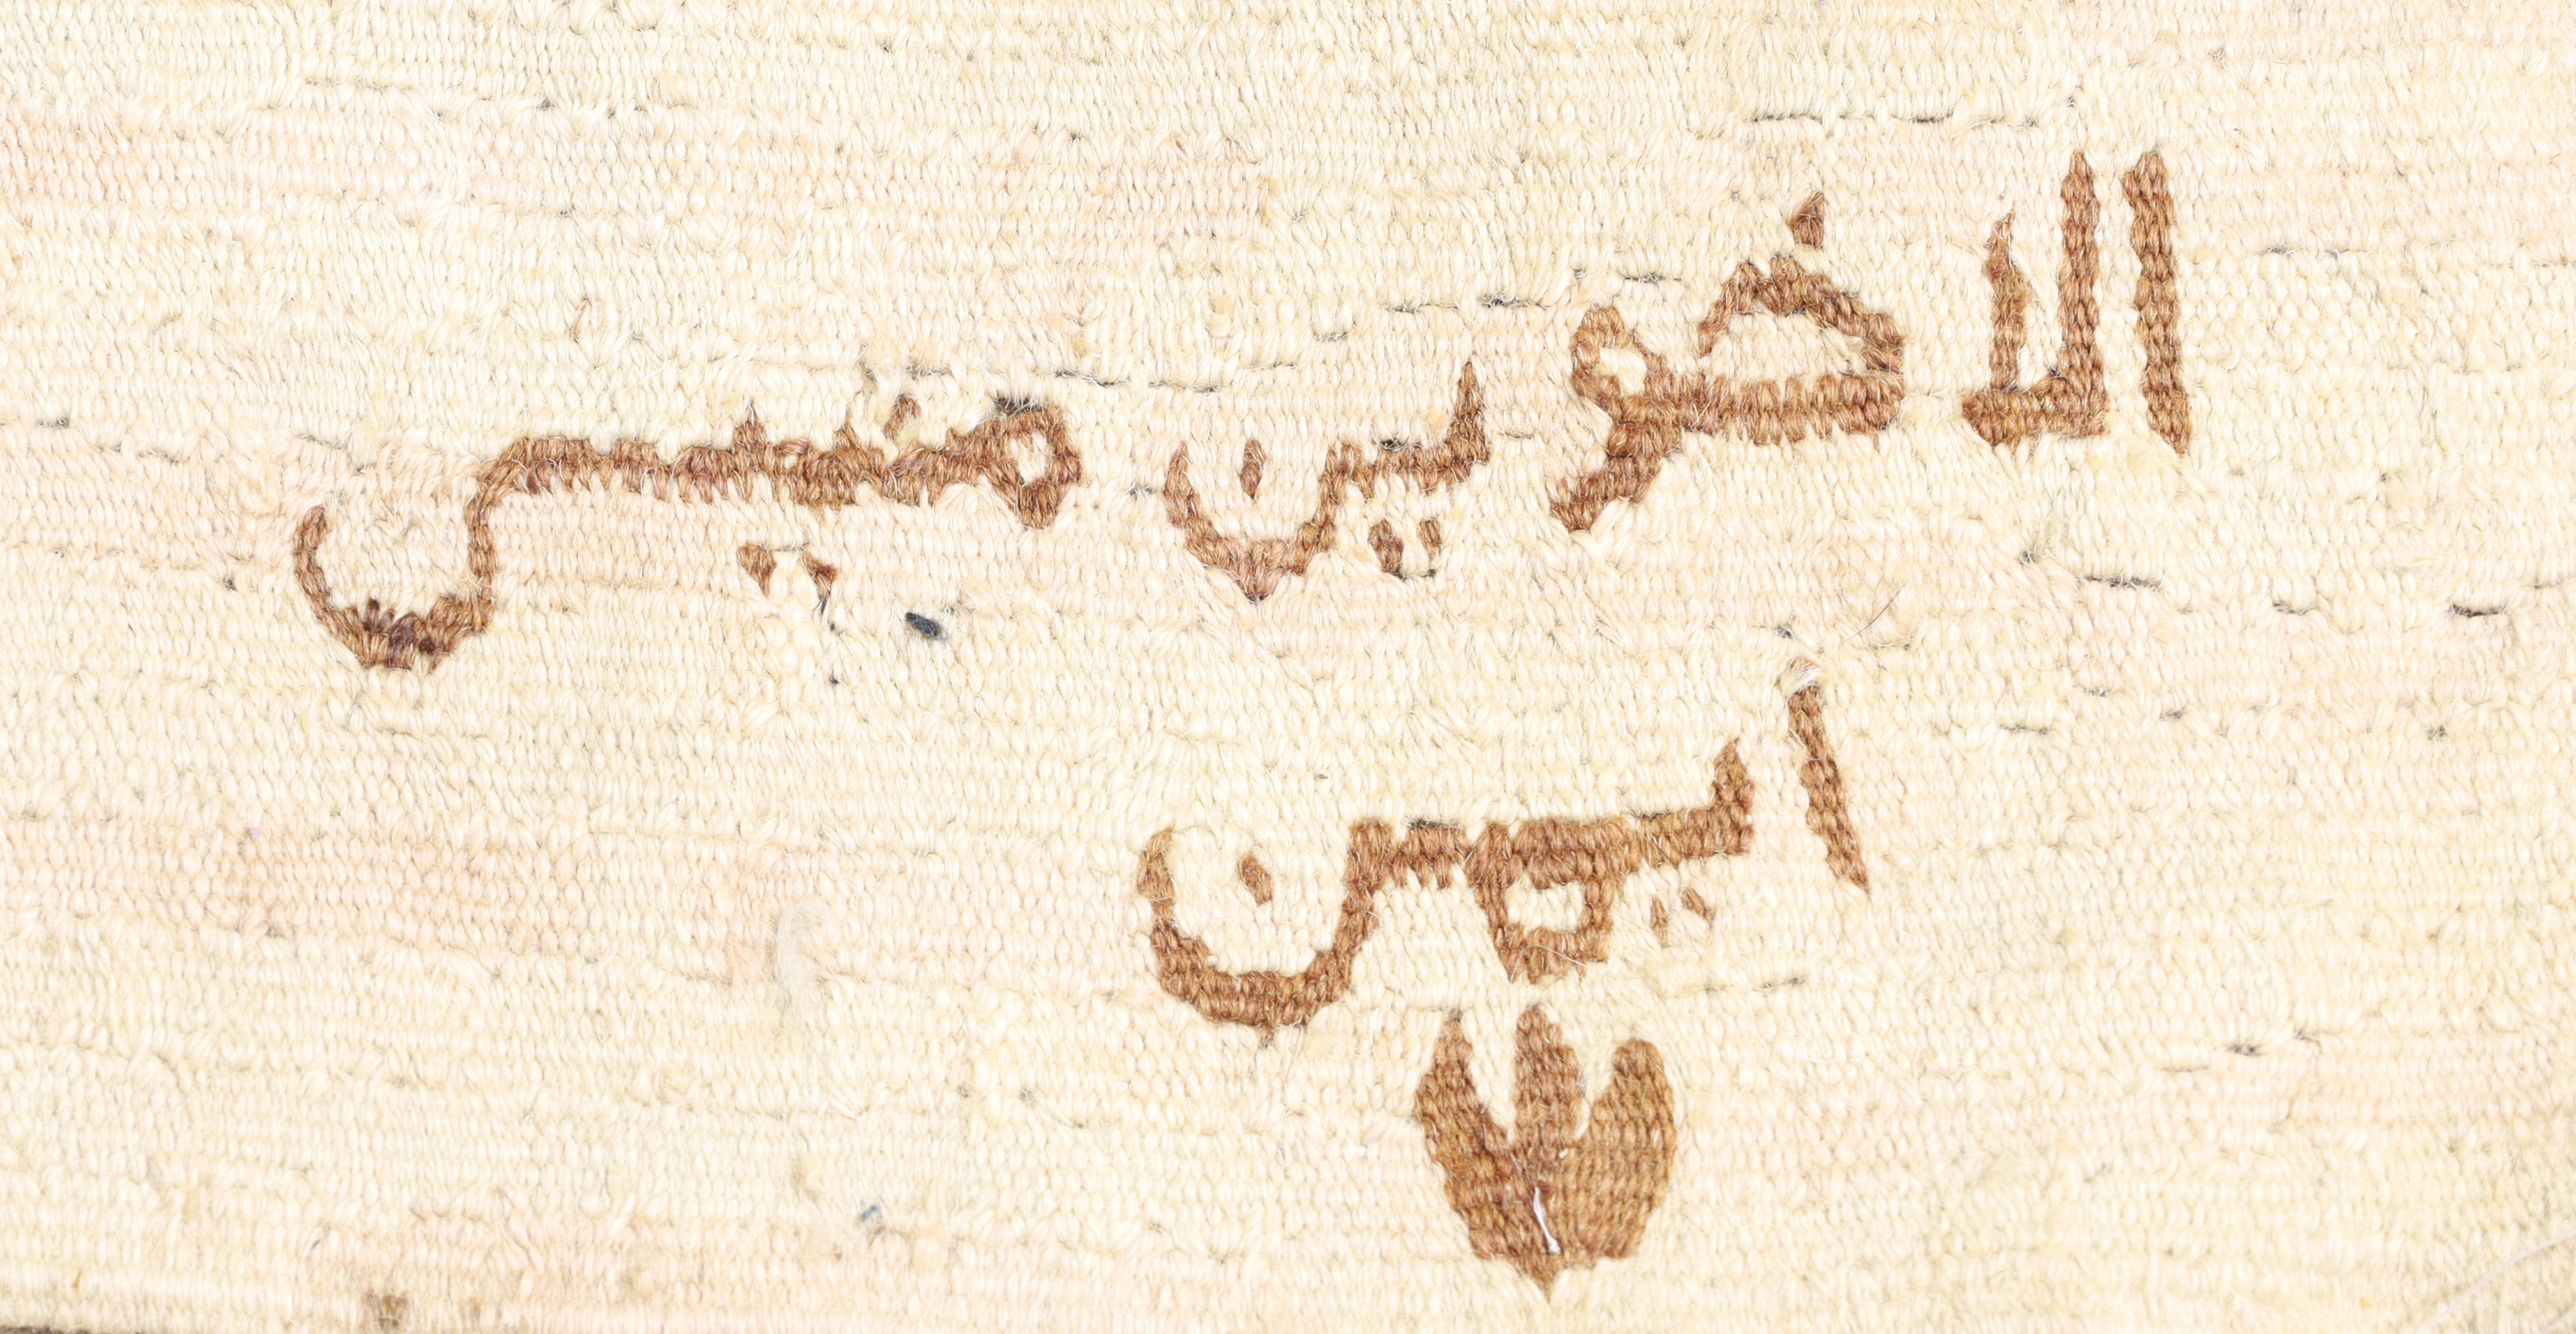 الاخوين منيس
ايمن